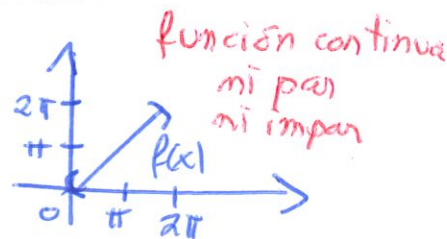 función continua
ni par
ni impar
2π
π
f(x)
0
π
2π